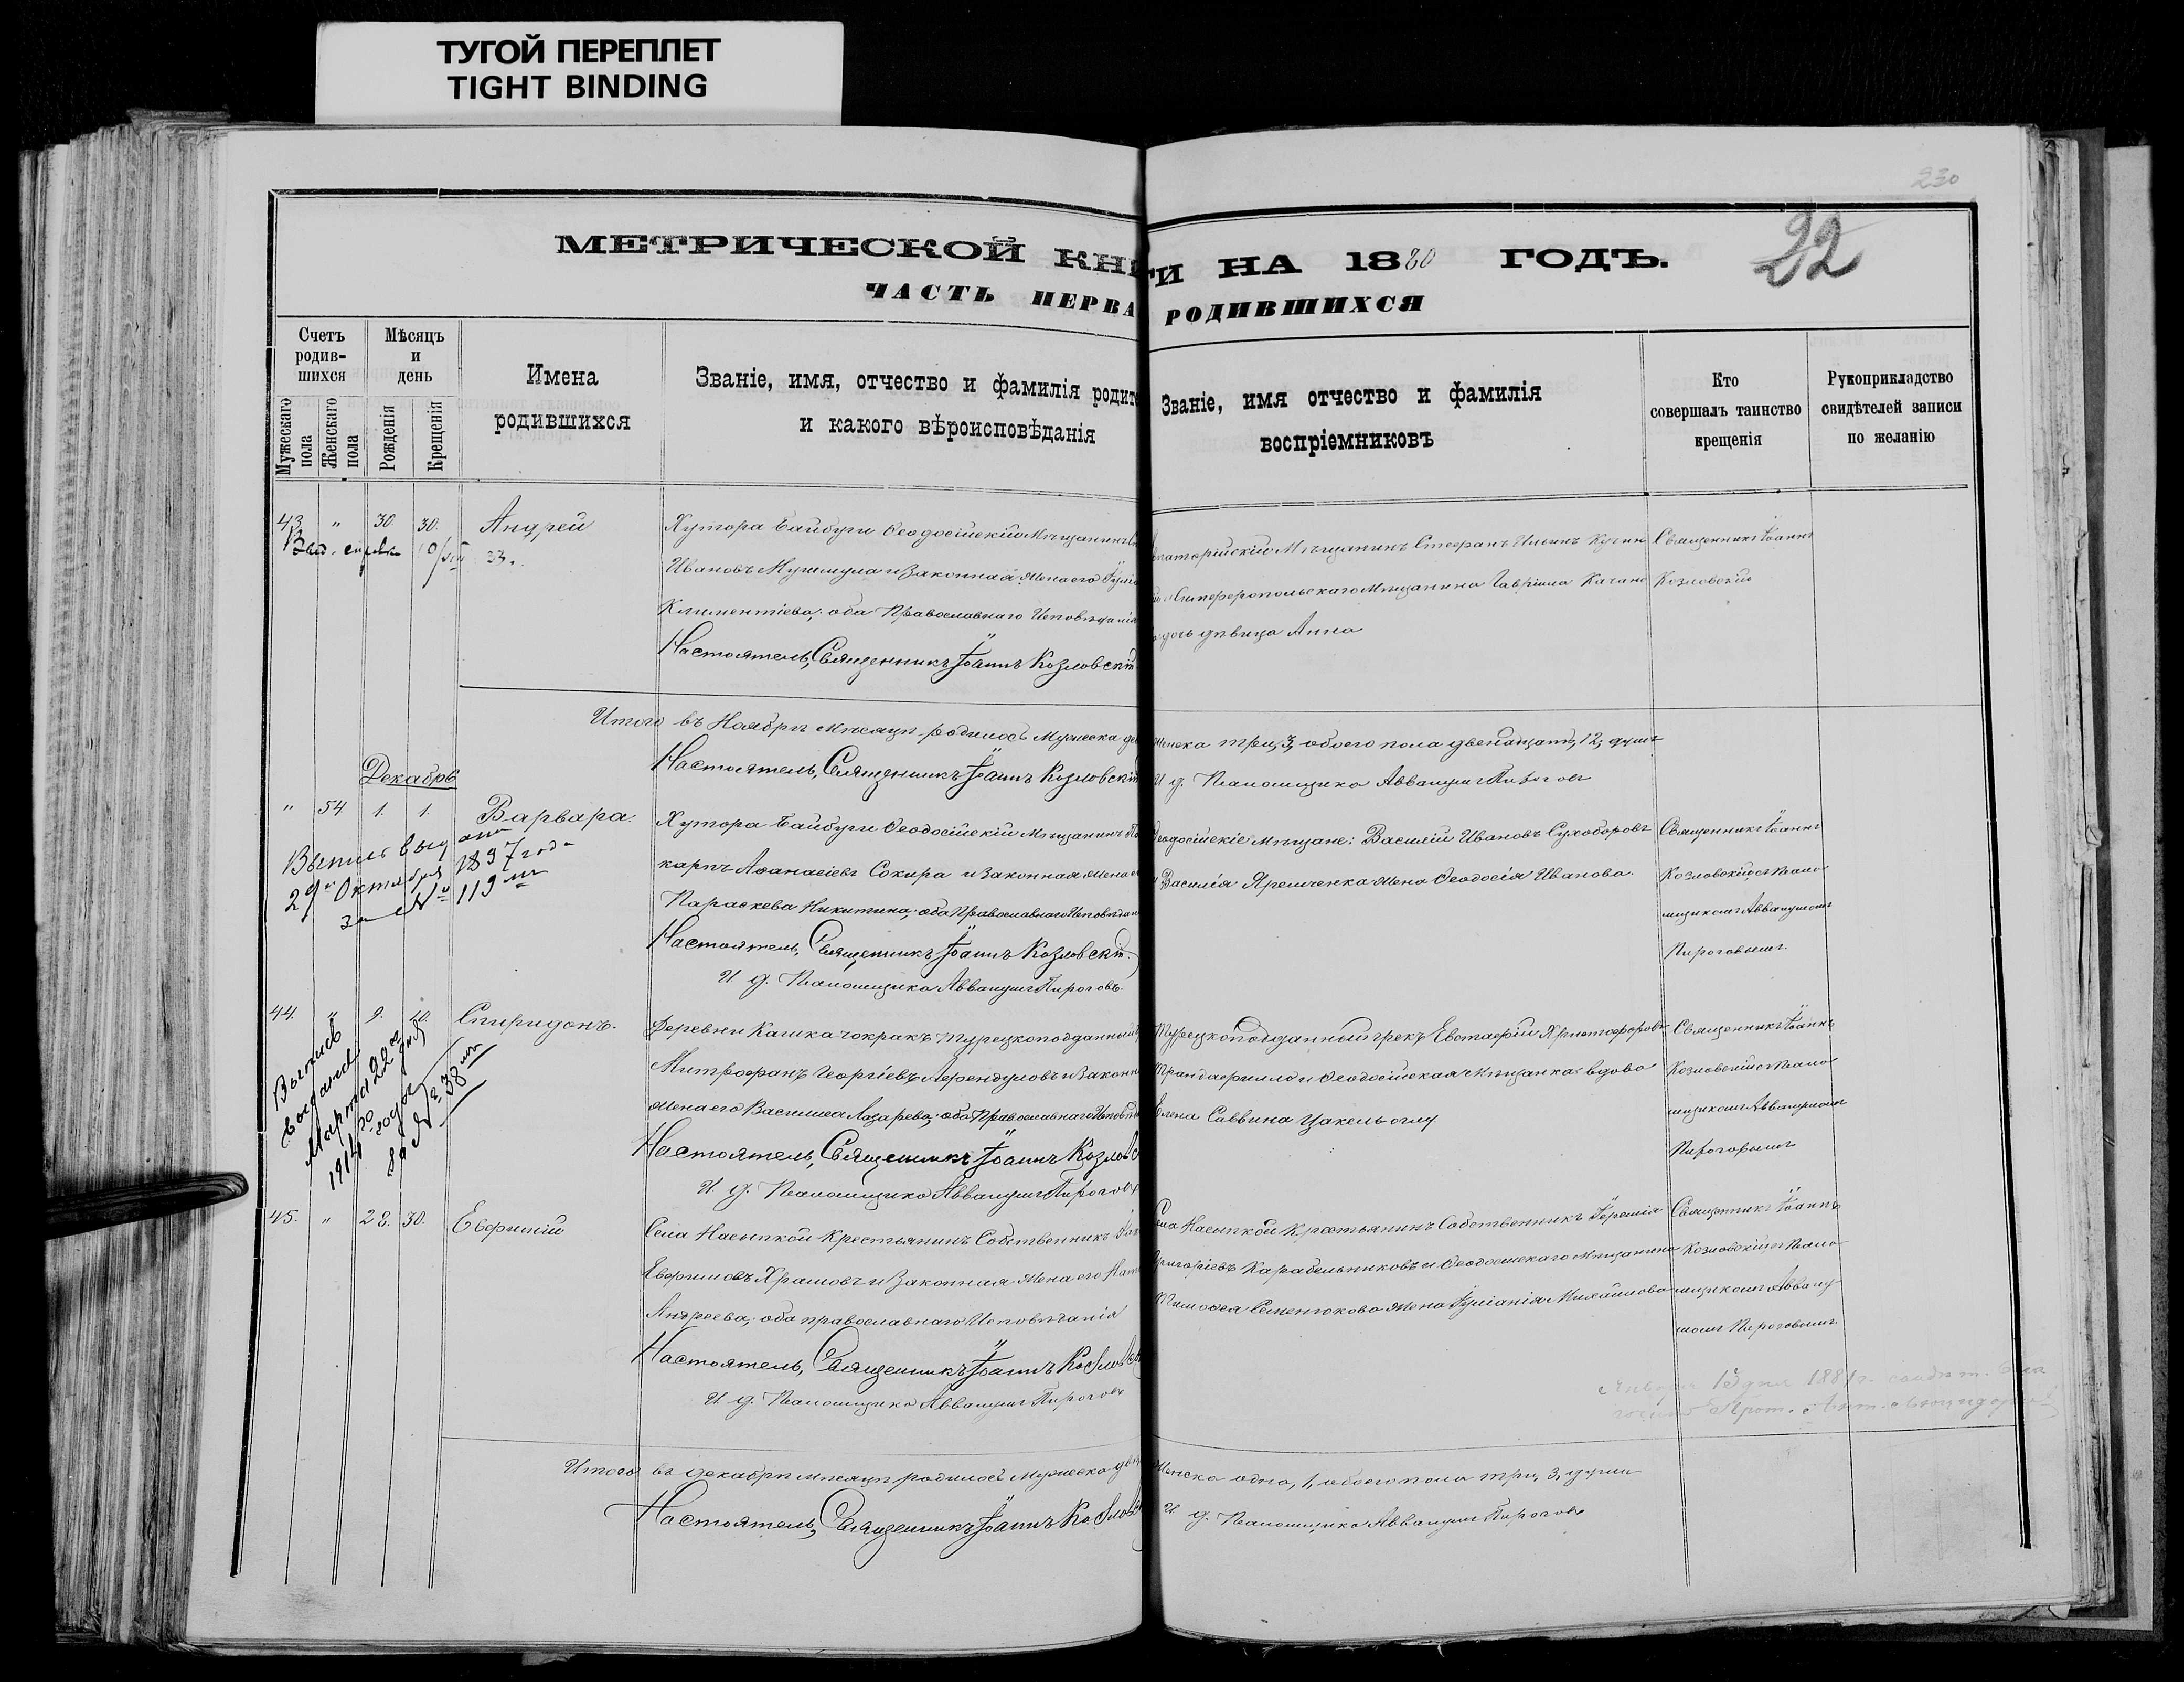 ТУГОЙ ПЕРЕПЛЕТ
TIGHT BINDING
230
22
МЕТРИЧЕСКОЙ КНИ
ГИ НА 1880 ГОДЪ.
ЧАСТЬ ПЕРВА
РОДИВШИХСЯ
Счетъ родив-шихся
Мѣсяцъ и день
Мужескаго пола
Женскаго пола
Рожденія
Крещенія
Имена родившихся
Званіе, имя, отчество и фамилія родите
и какого вѣроисповѣданія
Званіе, имя отчество и фамилія
воспріемниковъ
Кто совершалъ таинство крещенія
Рукоприкладство свидѣтелей записи по желанію
43 " 30 30. Андрей
Хутора Байбуги Ѳеодосійскій Мѣщанинъ
Ивановъ Мушмула и Законная Жена его Іулі
Климентіева; оба Православнаго Исповѣданія
Настоятель, Священникъ Іоаннъ Козловскій
Мѣщанинъ Стефанъ Ильинъ
Симферопольскаго Мѣщанина Гавріила
дочь дѣвица Анна
Священникъ Іоаннъ
Козловскій
Итого въ Ноябрѣ мѣсяцѣ родилось Мужеска де
женска три, 3, обоего пола двенадцать, 12, душъ
Настоятель, Священникъ Іоаннъ Козловскій
И д. Псаломщика Аввакумъ Пироговъ
Декабрь
" 54 1. 1. Варвара.
Выпись выдана
29 Октября 1897 года
за № 119
Хутора Байбуги Ѳеодосійскій Мѣщанинъ По
карпъ Аѳанасіевъ Сокира и Законная Жена е
Параскева Никитина; оба Православнаго Исповѣдан
Настоятель, Священникъ Іоаннъ Козловскій.
И д. Псаломщика Аввакумъ Пироговъ.
еодосійскіе мѣщане: Василій Ивановъ Сухоборовъ
и Василія Яременка жена Ѳеодосія Иванова.
Священникъ Іоаннъ
Козловскій съ Псало
мщикомъ Аввакумомъ
Пироговымъ.
44. " 9. 10. Спиридонъ.
Выпись
выдана
Марта 22
1914 года
за № 38
Деревни Кашка чокракъ Турецкоподданный
Митрофанъ Георгіевъ и Законн
жена его Василиса Лазарева; оба Православнаго Исповѣд
Настоятель, Священникъ Іоаннъ Козловс
И. д. Псаломщика Аввакумъ Пироговъ
Турецкоподданный грекъ Евстафій Христофоровъ
и Ѳеодосійская Мѣщанка вдова
Елена Саввина
Священникъ Іоаннъ
Козловскій съ Псало
мщикомъ Аввакумомъ
Пироговымъ
45. " 28. 30. Евфимій
Села Насыпкой Крестьянинъ Собственникъ
Евфимовъ Храмовъ и Законная Жена его Ната
Андреева; оба православнаго Исповѣданія
Настоятель, Священникъ Іоаннъ Козловск
И д. Псаломщика Аввакумъ Пироговъ
Села Насыпкой Крестьянинъ Собственникъ Іеремія
Григоріевъ Карабельниковъ и Ѳеодосійскаго Мѣщанина
Тимоѳея Семенюкова жена Іуліанія Михайлова
Священникъ Іоаннъ
Козловскій съ Псало
мщикомъ Авваку
момъ Пироговымъ
Января 13 дня 1881 г.
Итого въ декабрѣ мѣсяцѣ родилось Мужеска два
Женска одна, 1, обоего пола три, 3, души
Настоятель, Священникъ Іоаннъ Козловс
И д. Псаломщика Аввакумъ Пироговъ